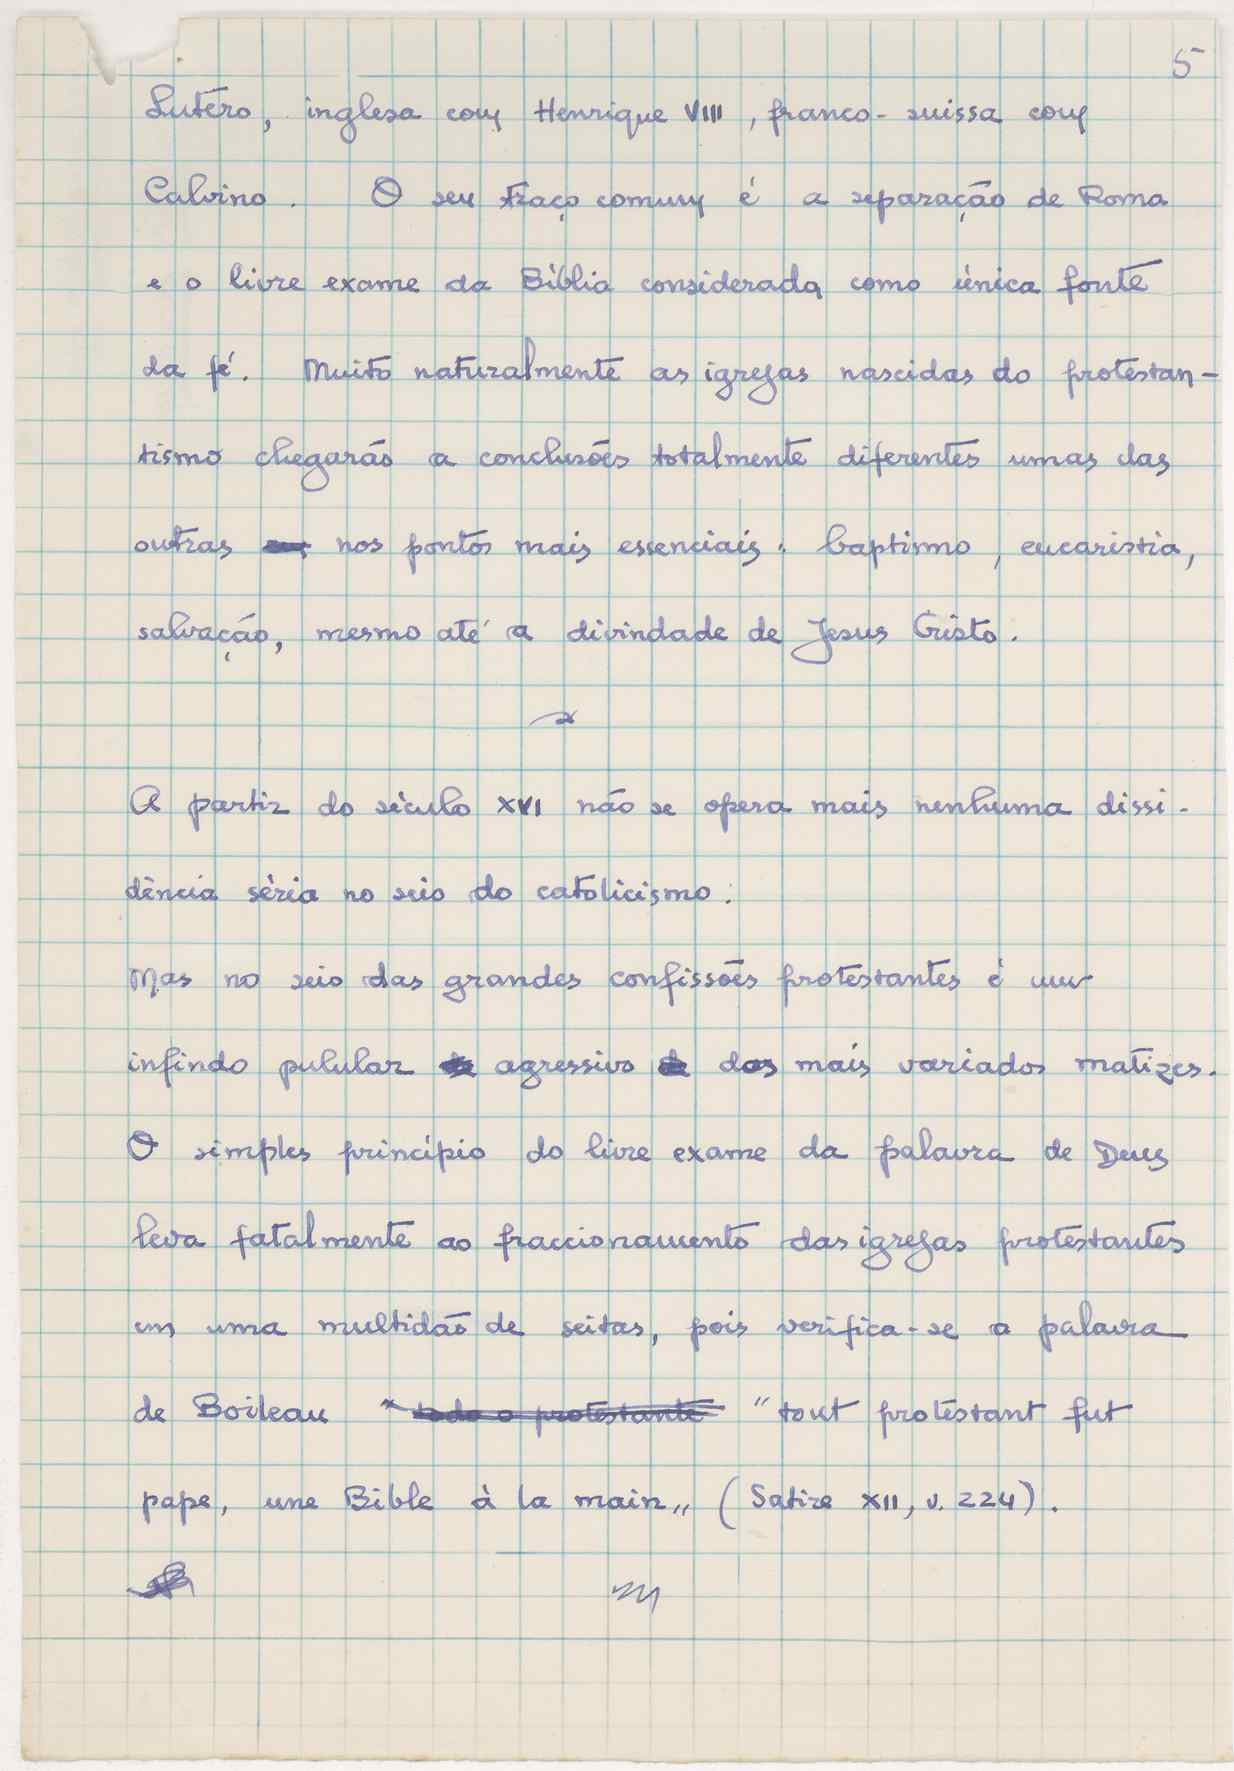 5
Lutero, inglesa com Henrique VIII, franco-suissa com
Calvino. O seu traço comum é a separação de Roma
e o livre exame da Bíblia considerada como única fonte
da fé. Muito naturalmente as igrejas nascidas do protestan-
tismo chegarão a conclusões totalmente diferentes umas das
outras nos pontos mais essenciais: baptismo, eucaristia,
salvação, mesmo até a divindade de Jesus Cristo.
A partir do século XVI não se opera mais nenhuma dissi-
dência séria no seio do catolicismo.
Mas no seio das grandes confissões protestantes é um
infindo pulular agressivo dos mais variados matizes.
O simples princípio do livre exame da palavra de Deus
leva fatalmente ao fraccionamento das igrejas protestantes
em uma multidão de seitas, pois verifica-se a palavra
de Boileau "todo o protestante "tout protestant fut
pape, une Bible à la main„ (Satire XII, v. 224).